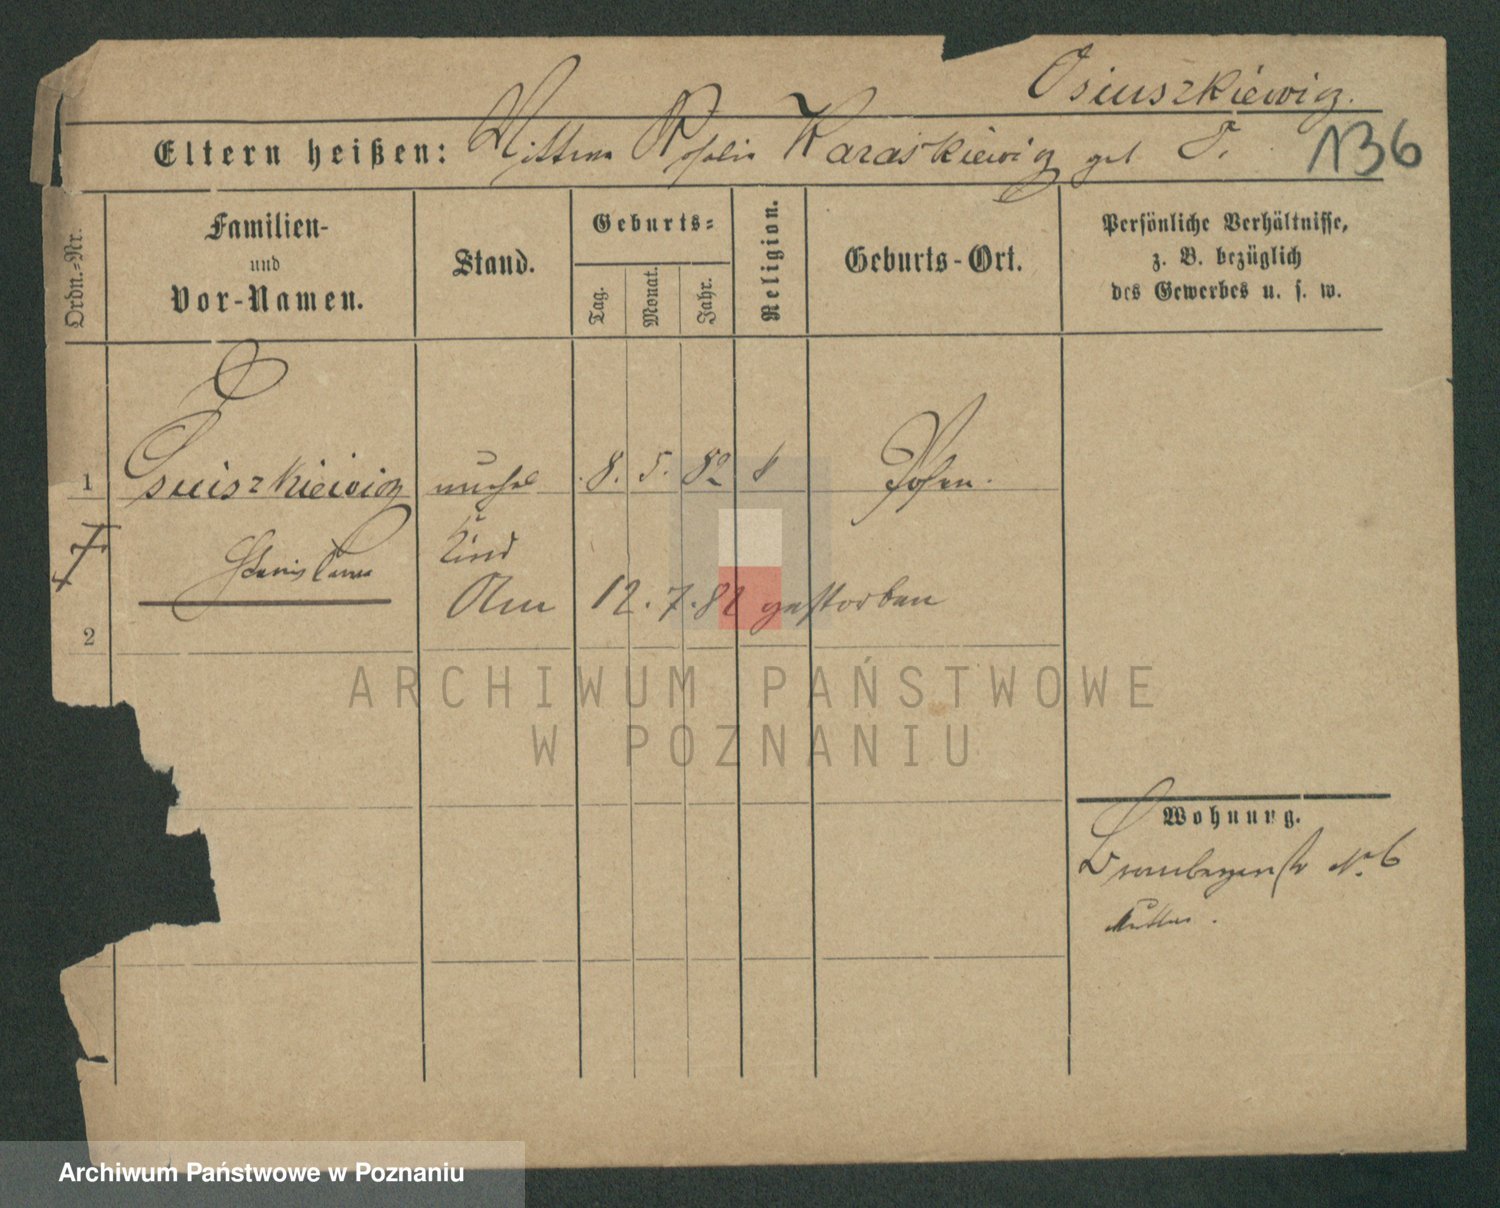 Osiuszkiewicz.
Eltern heißen: Wittwe Rosalie Karaśkiewicz geb O. 136
Ordn.=Nr.
Familien-
und
Vor-Namen.
Stand.
Geburts=
Tag.
Monat.
Jahr.
Religion.
Geburts-Ort.
Persönliche Verhältnisse,
z. B. bezüglich
des Gewerbes u. s. w.
1 Osuiszkiewicz unehel 8. 5. 82 k Posen.
Stanislaus Kind
Am 12. 7. 82 gestorben
2
ARCHIWUM PAŃSTWOWE
W POZNANIU
Wohnung.
Nr 6
Mutter.
Archiwum Państwowe w Poznaniu